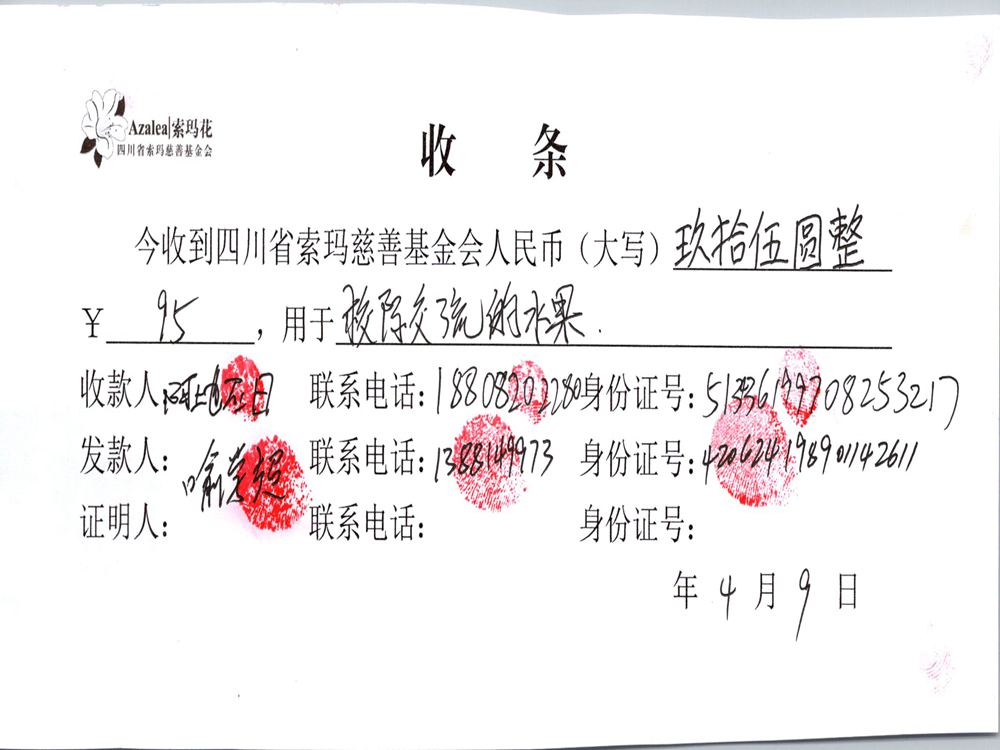 Azalea|索玛花
四川省索玛慈善基金会
收 条
今收到四川省索玛慈善基金会人民币（大写）玖拾伍圆整
￥ 95 ，用于 校际交流的水果.
收款人: 联系电话:18808202280 身份证号:51336199708253217
发款人: 喻 超 联系电话:1388149973 身份证号:420624198901142611
证明人: 联系电话: 身份证号:
年 4 月 9 日